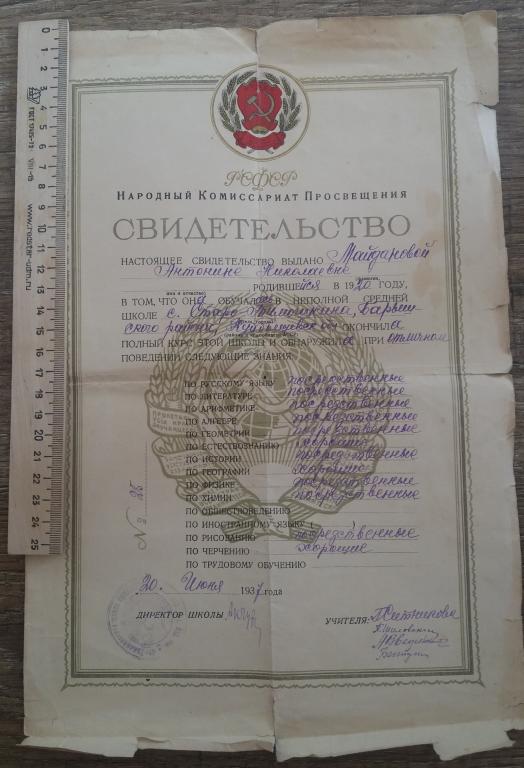 РСФСР
НАРОДНЫЙ КОМИССАРИАТ ПРОСВЕЩЕНИЯ
СВИДЕТЕЛЬСТВО
НАСТОЯЩЕЕ СВИДЕТЕЛЬСТВО ВЫДАНО Майдановой
Антонине Николаевне
РОДИВШЕЙСЯ В 1920 ГОДУ,
В ТОМ, ЧТО ОНА ОБУЧАЛАСЬ В НЕПОЛНОЙ СРЕДНЕЙ
ШКОЛЕ с. Старо-Тимошкина, Барыш-
ского района, ОКОНЧИЛА
ПОЛНЫЙ КУРС ЭТОЙ ШКОЛЫ И ОБНАРУЖИЛА ПРИ отличном
ПОВЕДЕНИИ СЛЕДУЮЩИЕ ЗНАНИЯ:
ПО РУССКОМУ ЯЗЫКУ посредственные
ПО ЛИТЕРАТУРЕ посредственные
ПО АРИФМЕТИКЕ посредственные
ПО АЛГЕБРЕ посредственные
ПО ГЕОМЕТРИИ посредственные
ПО ЕСТЕСТВОЗНАНИЮ хорошие
ПО ИСТОРИИ посредственные
ПО ГЕОГРАФИИ хорошие
ПО ФИЗИКЕ посредственные
ПО ХИМИИ посредственные
ПО ОБЩЕСТВОВЕДЕНИЮ
ПО ИНОСТРАННОМУ ЯЗЫКУ
ПО РИСОВАНИЮ посредственные
ПО ЧЕРЧЕНИЮ хорошие
ПО ТРУДОВОМУ ОБУЧЕНИЮ
№ 26
20. Июня 1937 года
ДИРЕКТОР ШКОЛЫ
УЧИТЕЛЯ: Ситникова
0 1 2 3 4 5 6 7 8 9 10 11 12 13 14 15 16 17 18 19 20 21 22 23 24 25
www.redstar-udm.ru